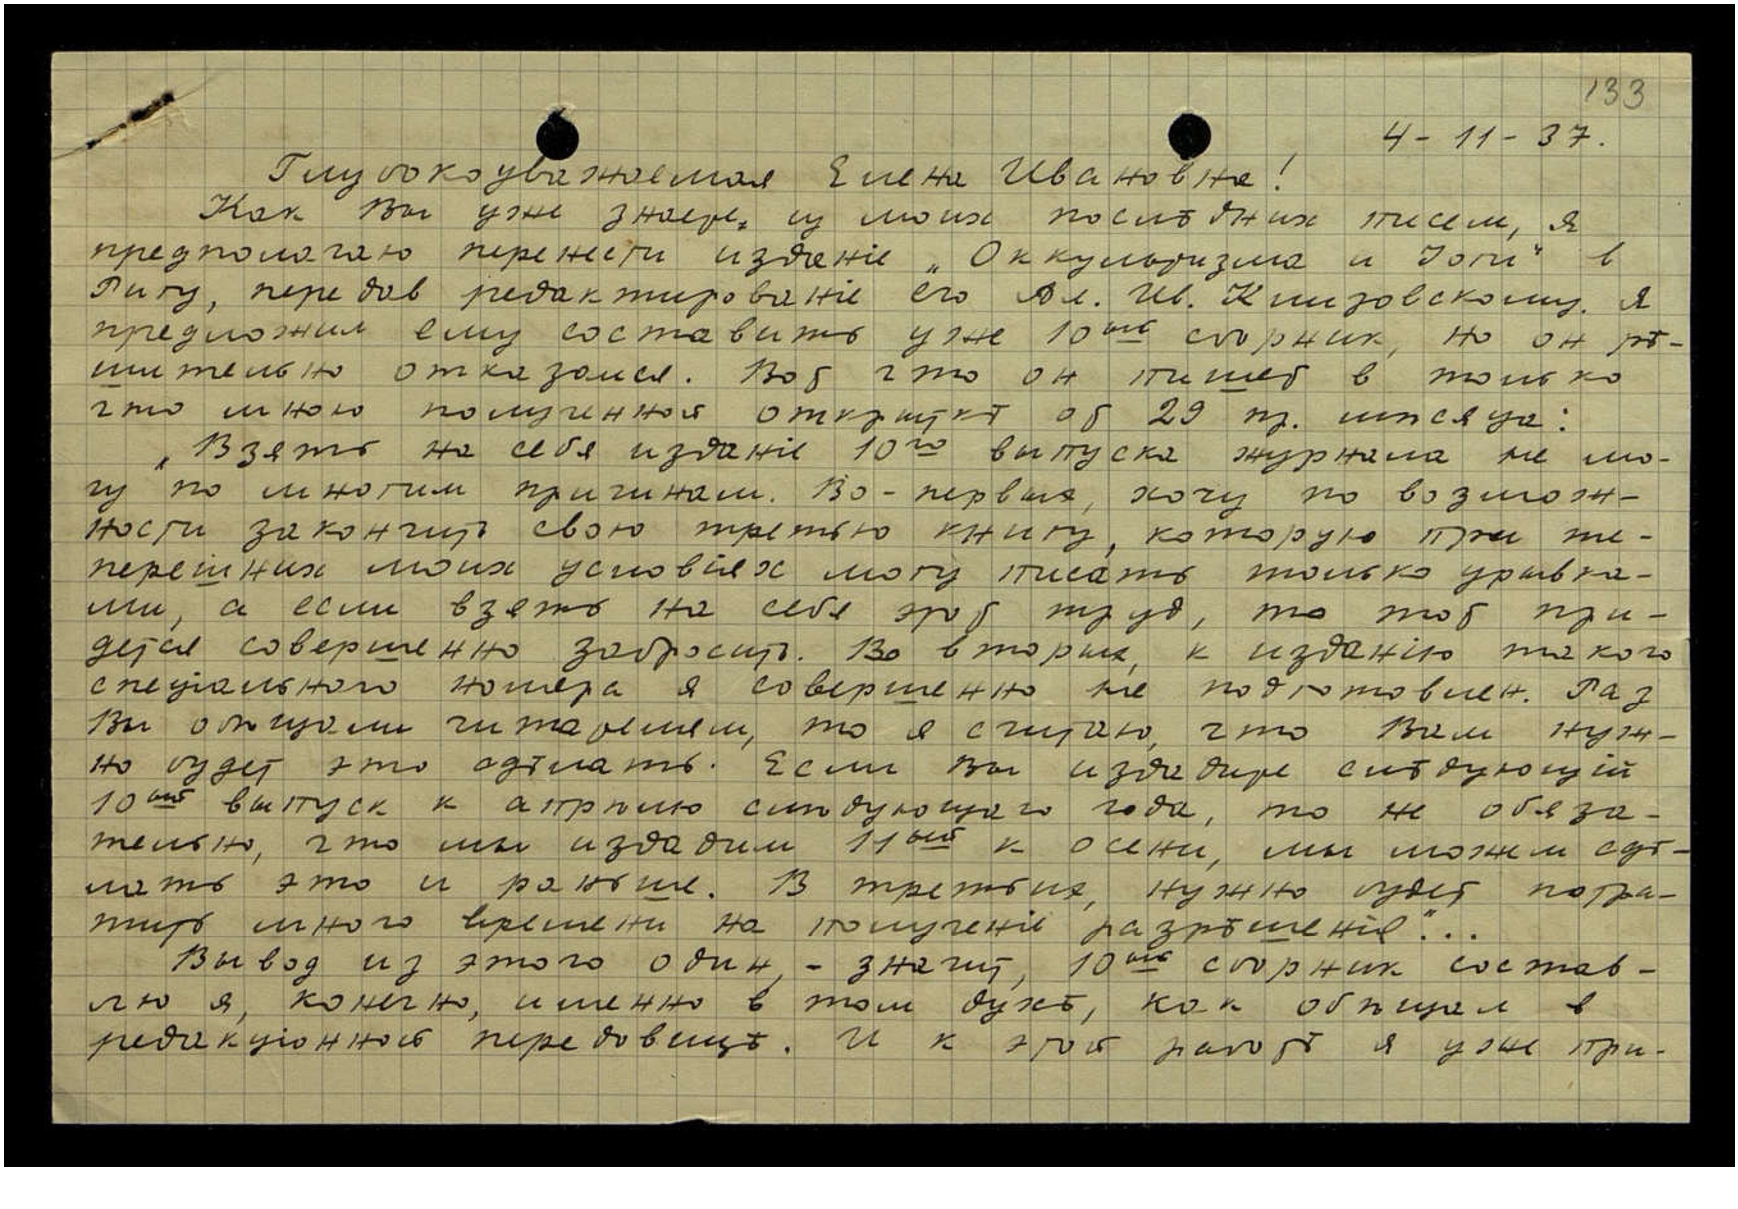 133
4-11-37.
Глубокоуважаемая Елена Ивановна!
Как Вы уже знаете, из моих послѣдних писем, я
предполагаю перенести изданіе „Оккультизма и Іоги" в
Ригу, передав редактированіе его Ал. Ив. Клизовскому. Я
предложил ему составить уже 10ый сборник, но он рѣ-
шительно отказался. Вот что он пишет в только
что мною полученной открыткѣ от 29 пр. мѣсяца:
„Взять на себя изданіе 10го выпуска журнала не мо-
гу по многим причинам. Во-первых, хочу по возмож-
ности закончить свою третью книгу, которую при те-
перешних моих условіях могу писать только урывка-
ми, а если взять на себя этот труд, то тот при-
дется совершенно забросить. Во вторых, к изданію такого
спеціального номера я совершенно не подготовлен. Раз
Вы обѣщали читателям, то я считаю, что Вам нуж-
но будет это сдѣлать. Если Вы издадите слѣдующій
10ый выпуск к апрѣлю слѣдующаго года, то не обяза-
тельно, что мы издадим 11ый к осени, мы можем сдѣ-
лать это и раньше. В третьих, нужно будет потра-
тить много времени на полученіе разрѣшенія"...
Вывод из этого один, - значит, 10ый сборник состав-
лю я, конечно, именно в том духѣ, как обѣщал в
редакціонной передовицѣ. И к этой работѣ я уже при-